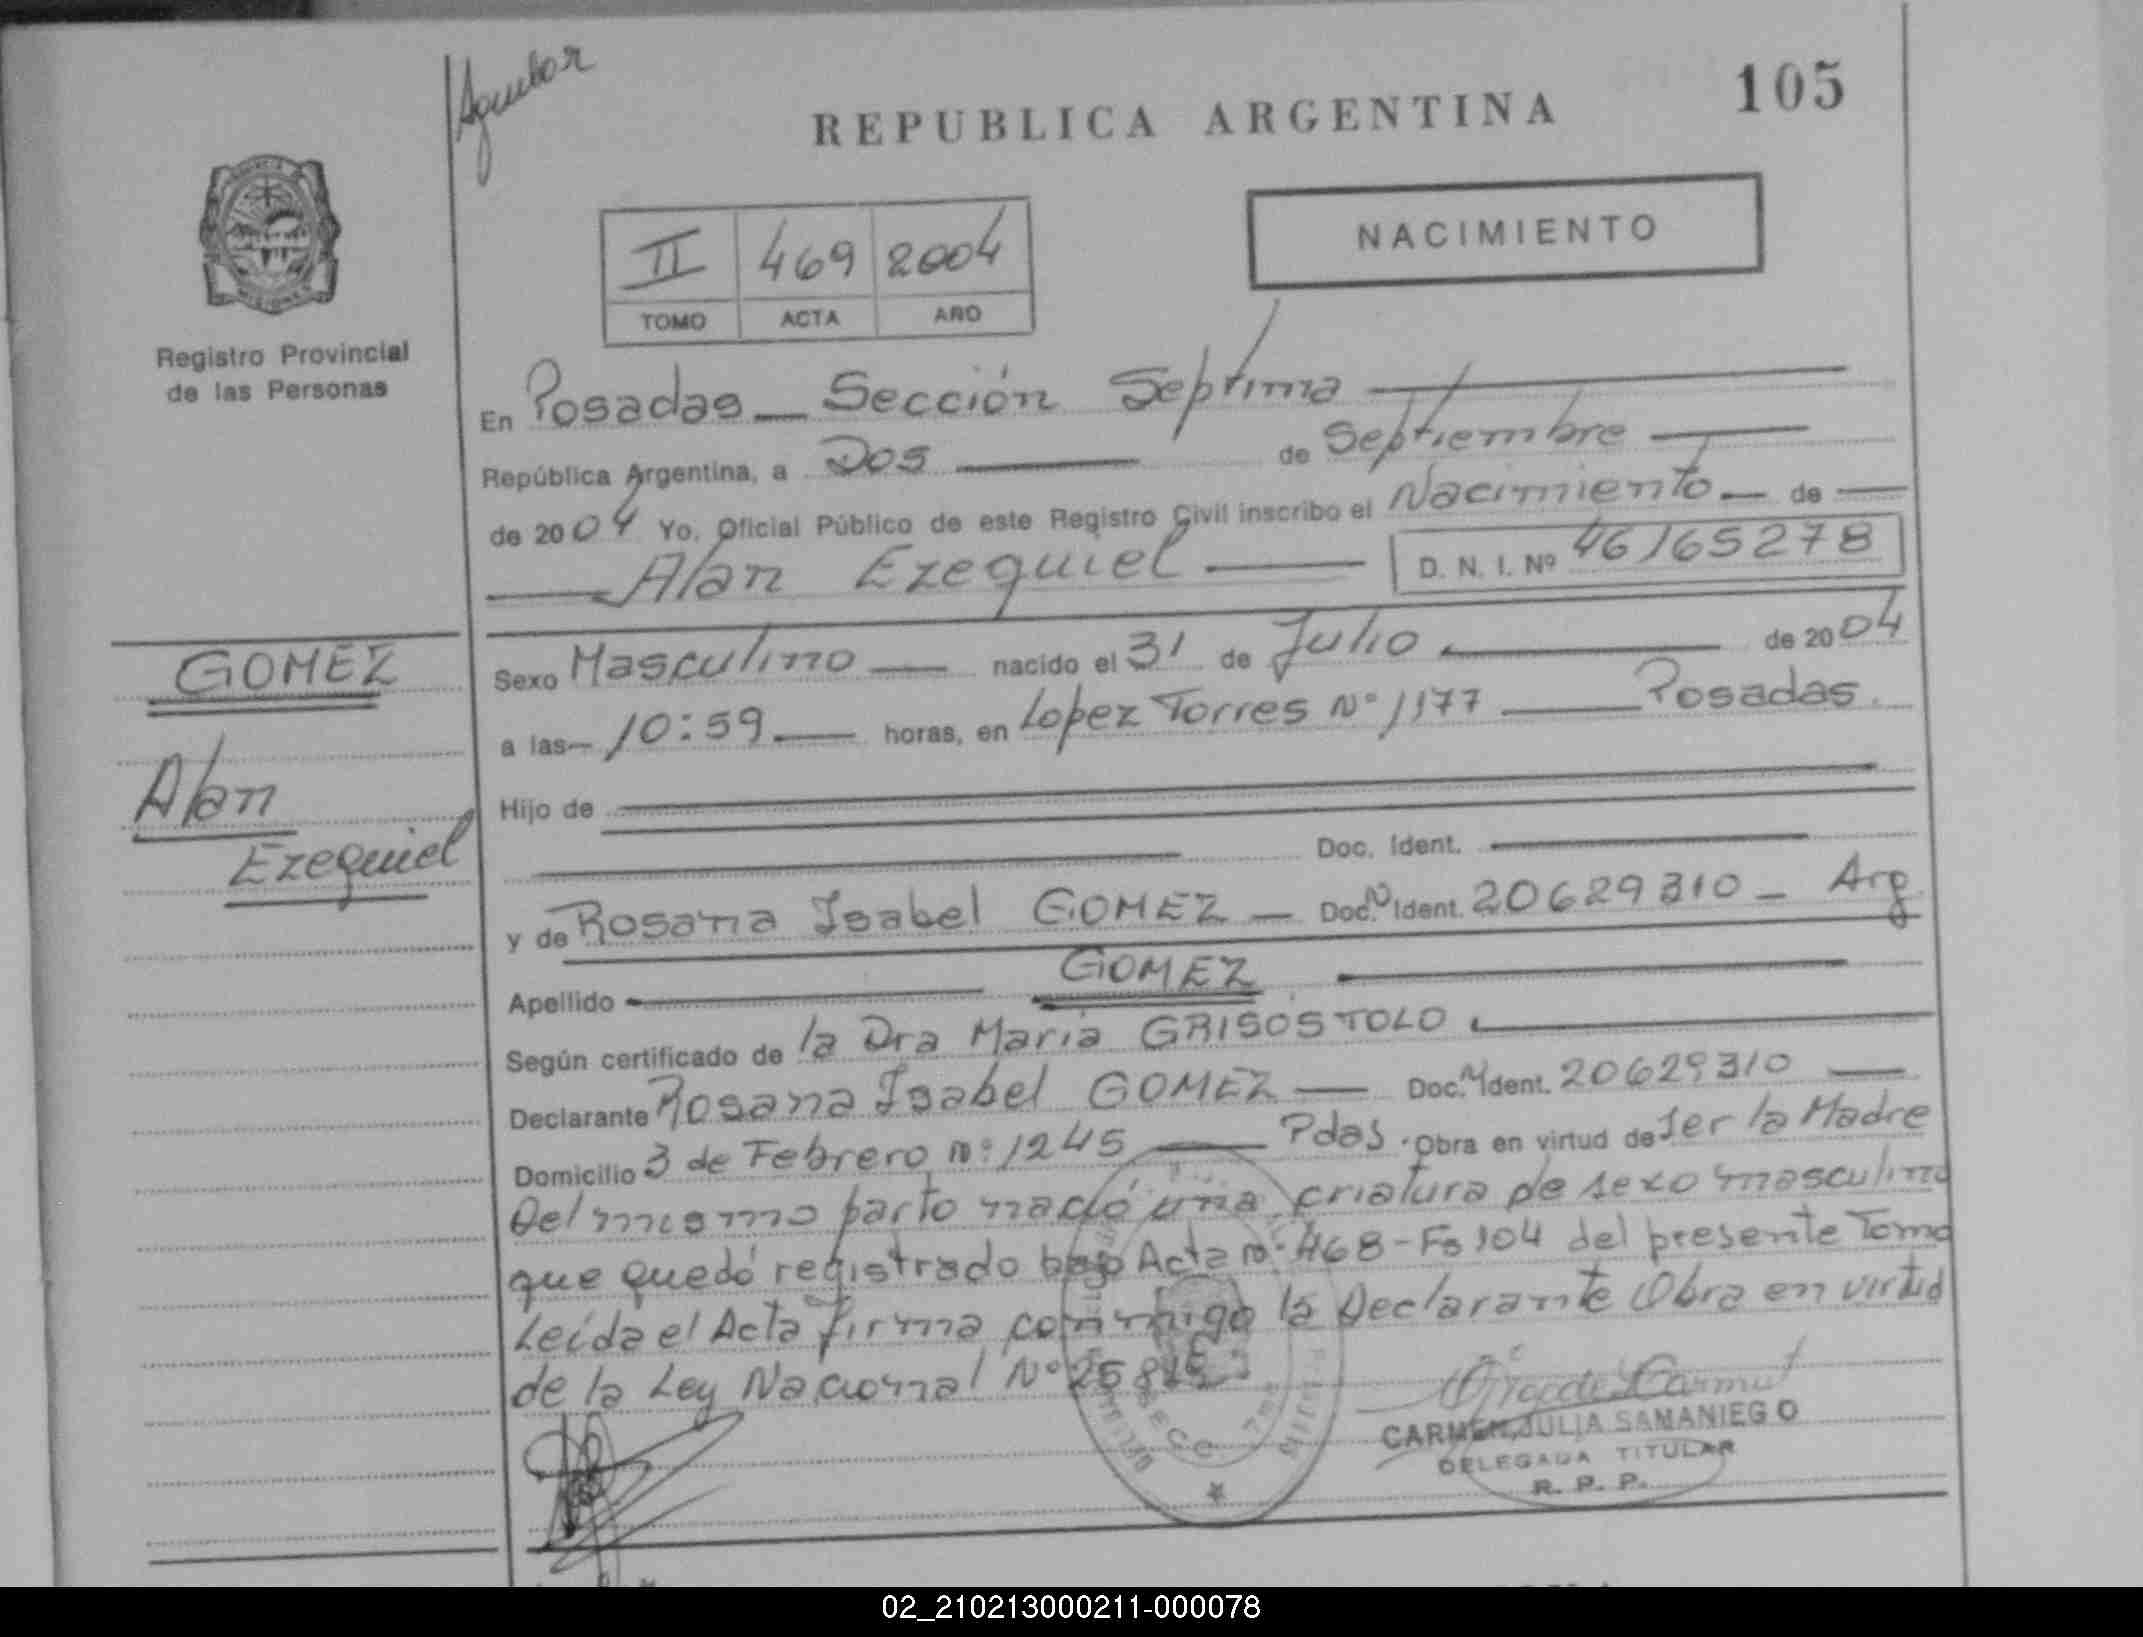 105
REPUBLICA ARGENTINA
NACIMIENTO
II 469 2004
TOMO ACTA AÑO
Registro Provincial
de las Personas
En Posadas Sección Septima
República Argentina, a Dos de Septiembre
de 2004 Yo, Oficial Público de este Registro Civil inscribo el Nacimiento de
Alan Ezequiel D. N. I. Nº 46165278
GOMEZ
Alan
Ezequiel
Sexo Masculino nacido el 31 de Julio de 2004
a las 10:59 horas, en Lopez Torres Nº 1177 Posadas.
Hijo de
Doc. Ident.
y de Rosana Isabel GOMEZ Doc. N Ident. 20629310 - Arg
Apellido GOMEZ
Según certificado de la Dra Maria GRISOSTOLO
Declarante Rosana Isabel GOMEZ Doc. N Ident. 20629310
Domicilio 3 de Febrero nº 1245 Pdas. Obra en virtud de ser la Madre
Del mismo parto nació una criatura de sexo masculino
que quedó registrado bajo Acta nº 468 - Fº 104 del presente Tomo
Leída el Acta firma conmigo la Declarante Obra en virtud
de la Ley Nacional Nº
SECC. 7ma
CARMEN JULIA SAMANIEGO
DELEGADA TITULAR
R. P. P.
02_210213000211-000078